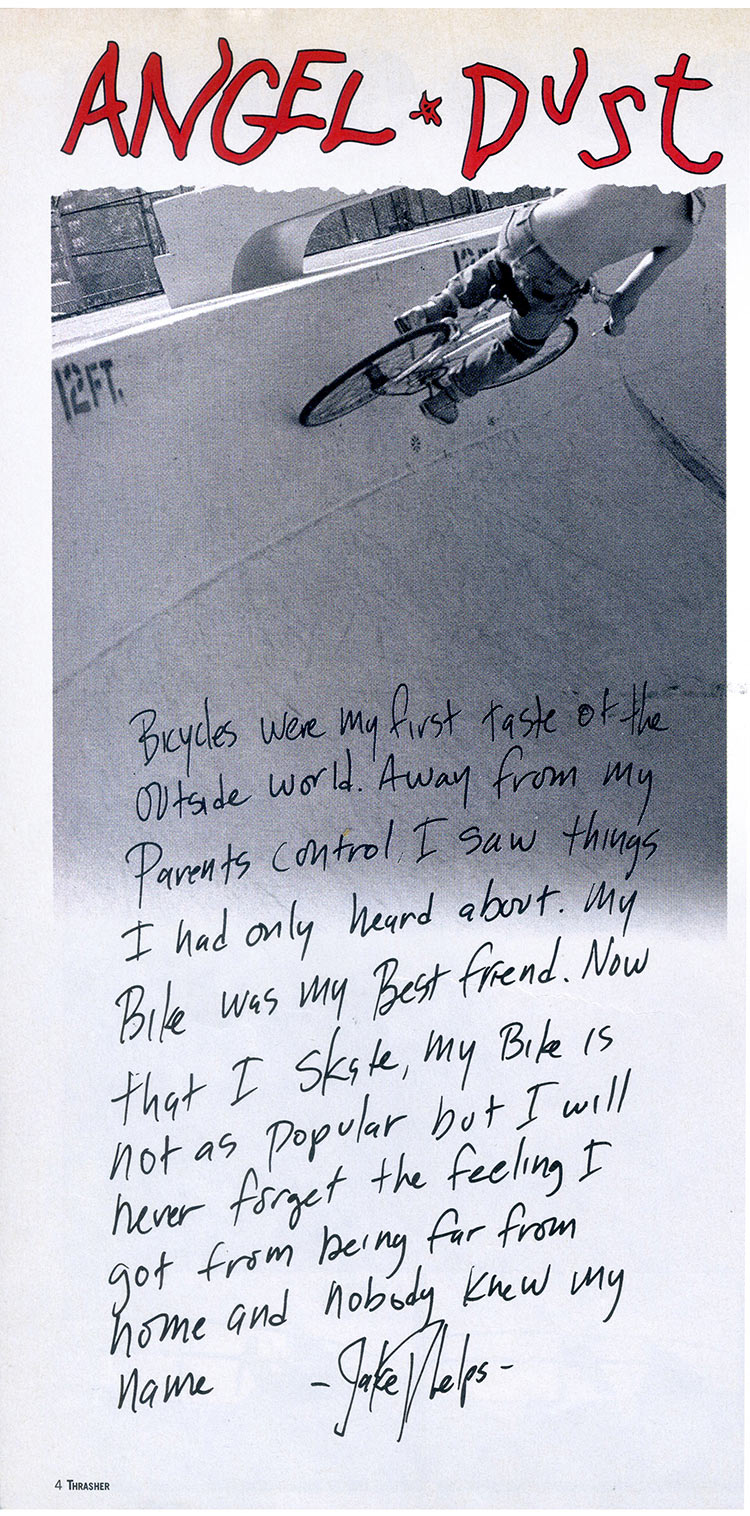 ANGEL DUST
12FT.
12FT
Bicycles were my first taste of the
Outside world. Away from my
Parents control, I saw things
I had only heard about. My
Bike was my Best friend. Now
that I skate, my Bike is
not as popular but I will
never forget the feeling I
got from being far from
home and nobody knew my
name -Jake Phelps-
4 THRASHER